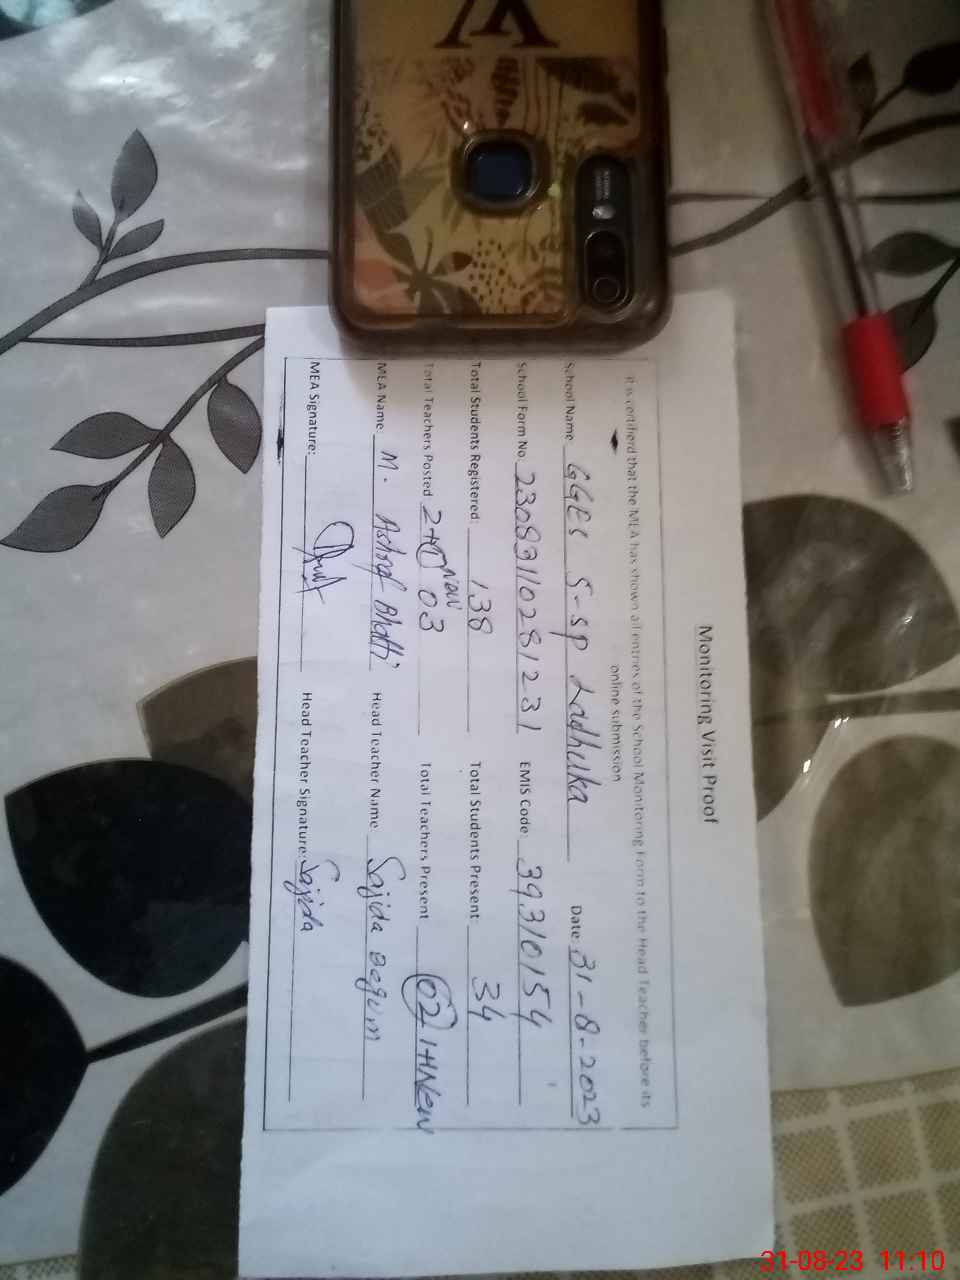 Monitoring Visit Proof
It is certifierd that the MEA has shown all entries of the School Monitoring Form to the Head Teacher before its
online submission
School Name GGES 5-SP Ladhuka Date: 31-8-2023
School Form No. 23083110281231 EMIS Code: 39310154
Total Students Registered: 138 Total Students Present: 34
Total Teachers Posted 2+1 New 03 Total Teachers Present 02 1+New
MEA Name M. Ashraf Bhatti Head Teacher Name Sajida Begum
MEA Signature: Head Teacher Signature: Sajida
31-08-23 11:10